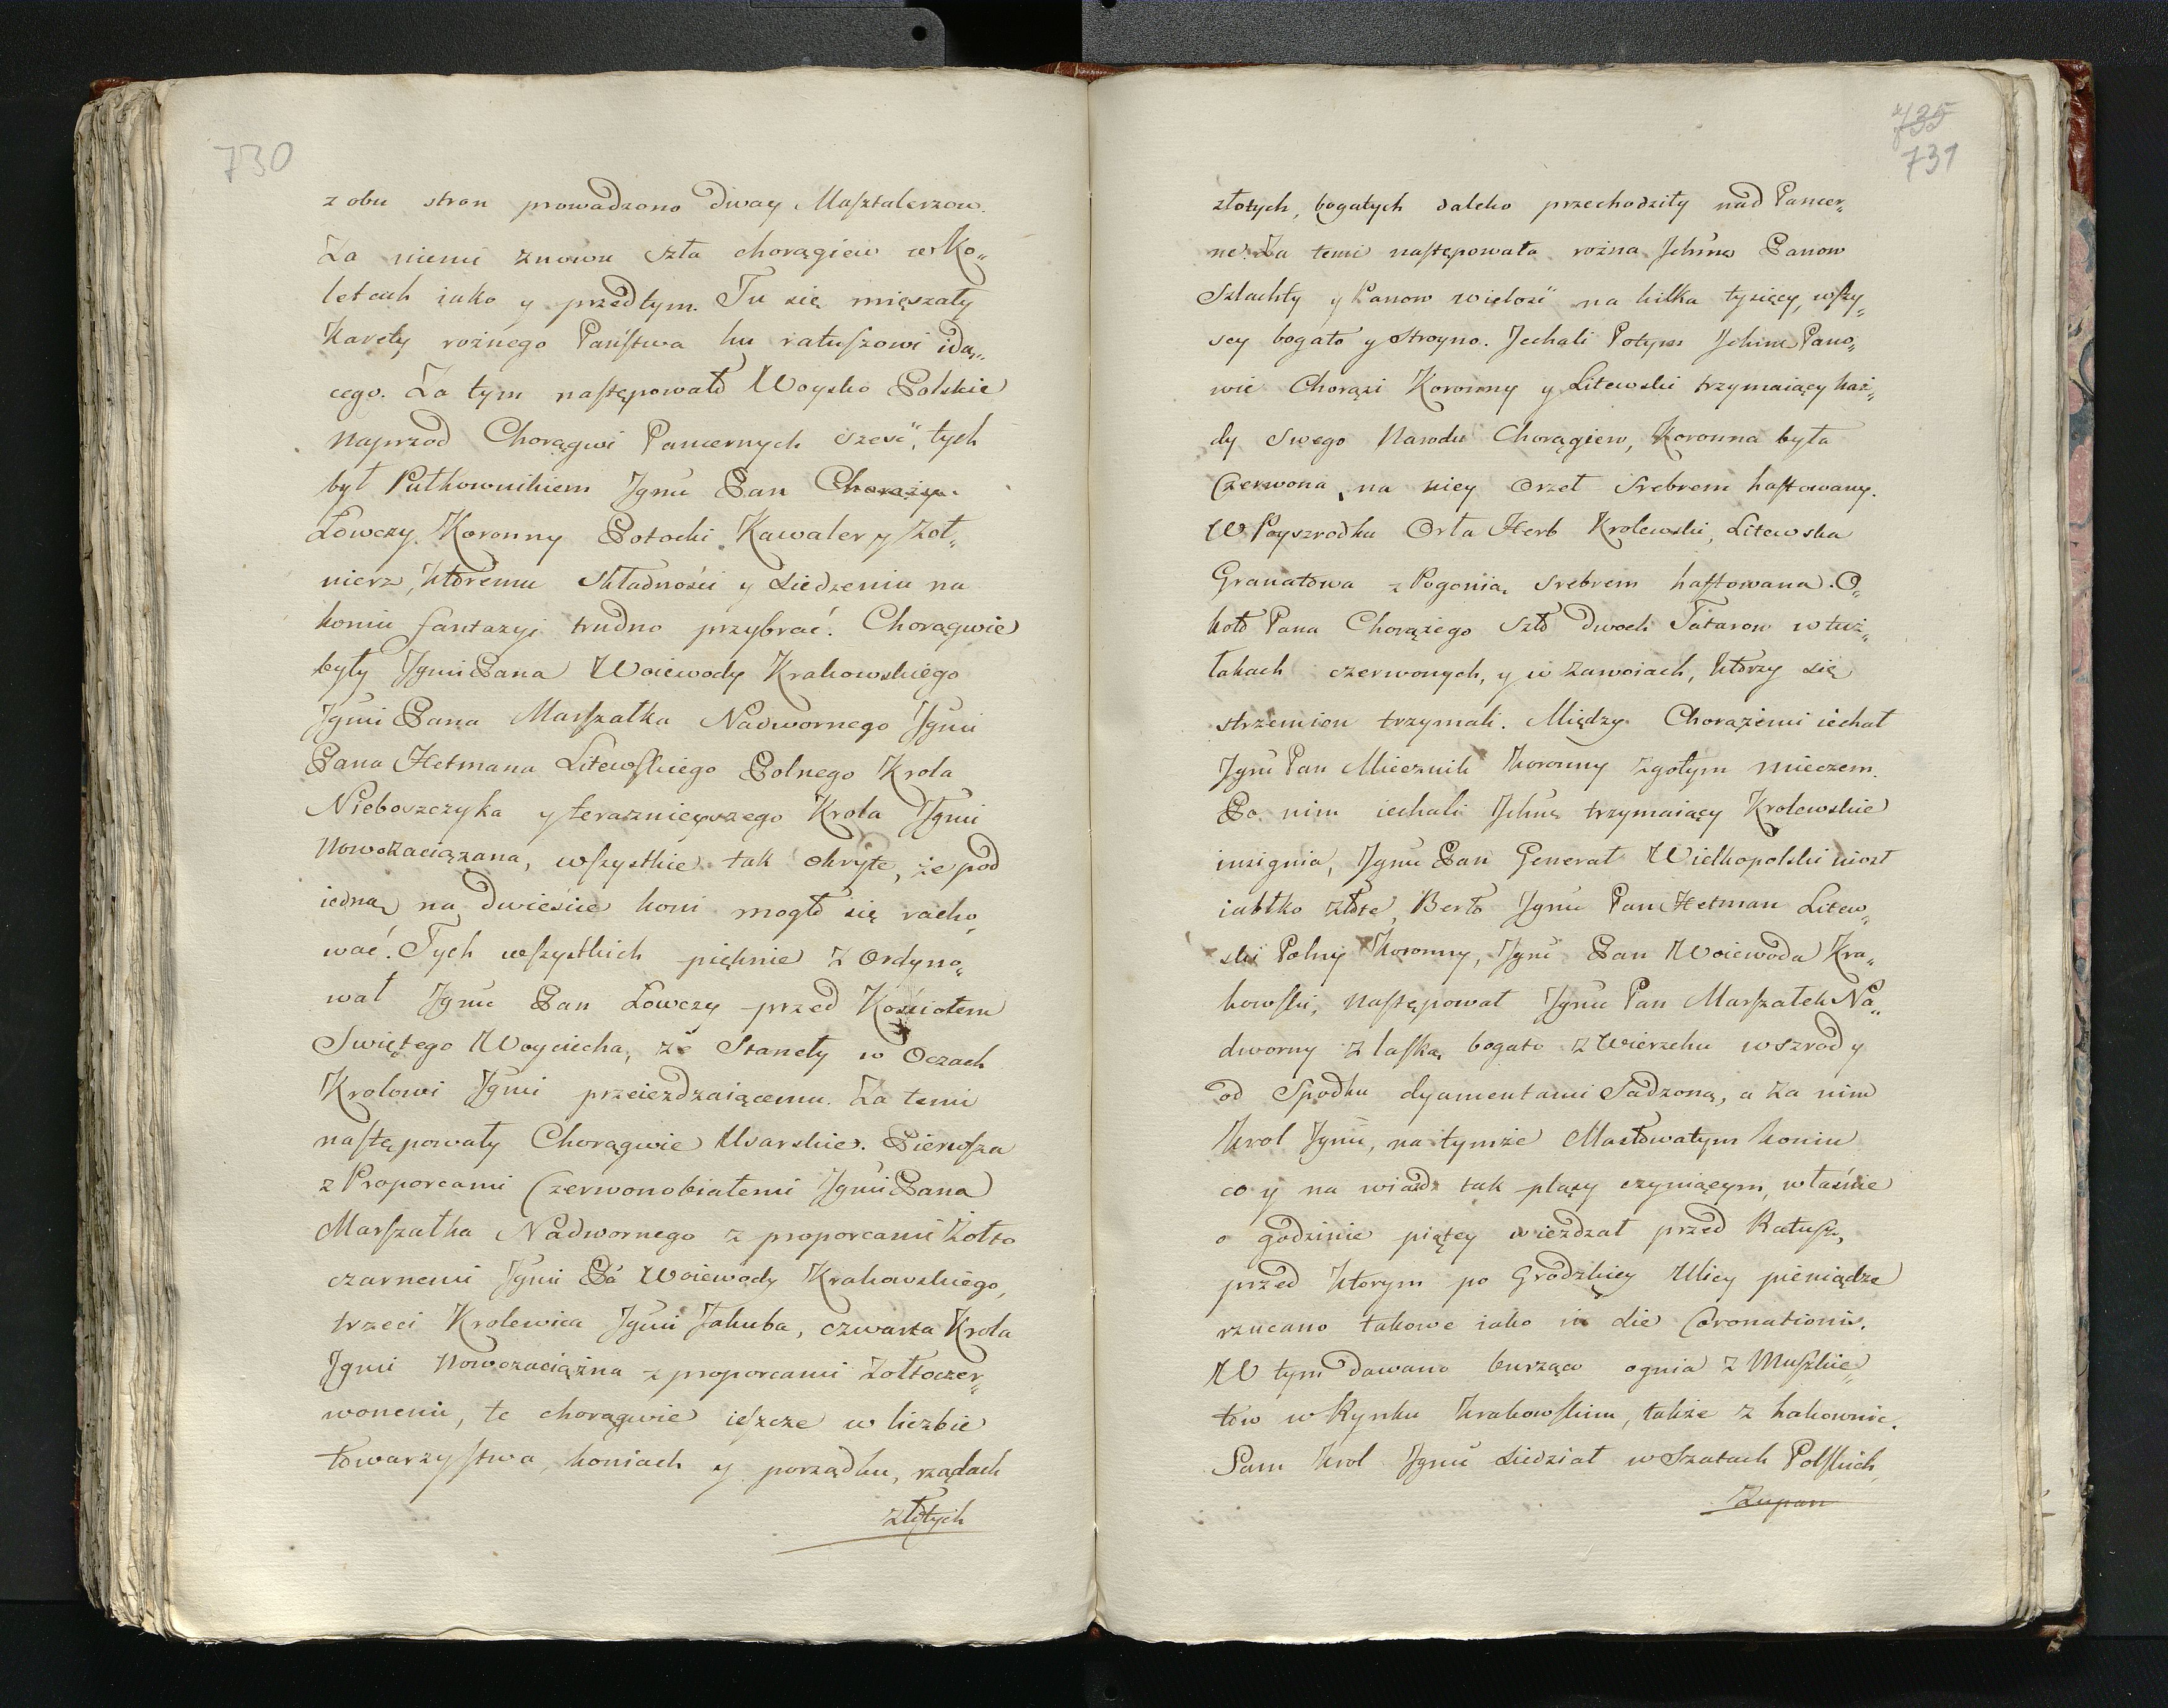 730
z obu stron prowadzono dway Masztalerzow.
Za niemi znowu szła chorągiew w Ko„
letach iako y przedtym. Tu się mięszały
Karety rożnego Państwa ku ratuszowi idą„
cego. Za tym następowało Woysko Polskie
naprzod Chorągwi Pancernych sześć, tych
był Pułkownikiem Jgmć Pan Chorąży
Łowczy Koronny Potocki Kawaler y Żoł„
nierz, ktoremu składności y siedzeniu na
koniu fantazyi trudno przybrać. Chorągwie
były Jgmci Pana Woiewody Krakowskiego
Jgmci Pana Marszałka Nadwornego Jgmci
Pana Hetmana Litewskiego Polnego Krola
Nieboszczyka y teraznieyszego Krola Jgmci
Nowozaciązana, wszystkie tak okryte, że pod
iedną na dwieście koni mogło się racho„
wać. Tych wszystkich pięknie z Ordyno„
wał Jgmć Pan Łowczy przed Kościołem
Swiętego Woyciecha, że Stanęły w Oczach
Krolowi Jgmci przeiezdzaiącemu. Za temi
następowały Chorągwie Usarskie. Pierwsza
z Proporcami Czerwonobiałemi Jgmci Pana
Marszałka Nadwornego z proporcami żołto
czarnemi Jgmci Pa Woiewody Krakowskiego,
trzeci Krolewica Jgmci Jakuba, czwarta Krola
Jgmci Nowozaciążna z proporcami Zołtoczer„
wonemi, te chorągwie ieszcze w liczbie
towarzystwa, koniach y porządku, rządach
złotych
735
731
złotych, bogatych daleko przechodziły nad Pancer„
ne. Za temi następowała rożna Jchmć Panow
Szlachty y Panow wielość na kilka tysięcy, wszy„
scy bogato y stroyno. Jechali Potym Jchmć Pano„
wie Chorązi Koronny y Litewski trzymaiący każ„
dy swego Narodu Chorągiew, Koronna była
Czerwona, na niey Orzeł srebrem haftowany.
W Poyszrodku Orła Herb Krolewski, Litewska
Granatowa z Pogonią srebrem haftowana. O„
koło Pana Chorążego szło dwoch Tatarow w tuż„
łakach czerwonych, y w zawoiach, ktorzy się
strzemion trzymali. Między Chorążemi iechał
Jgmć Pan Miecznik Koronny z gołym mieczem.
Po nim iechali Jchmć trzymaiący Krolewskie
insignia, Jgmć Pan Generał Wielkopolski niosł
iabłko złote, Berło Jgmć Pan Hetman Litew„
ski Polny Koronny, Jgmć Pan Woiewoda Kra„
kowski, następował Jgmć Pan Marszałek Na„
dworny z laską bogato z wierzchu wszrod y
od Spodku dyamentami Sadzoną, a za nim
Krol Jgmć, na tymże Masłowatym koniu
co y na wiazd tak pląsy czyniącym, właśnie
o godzinie piątey wiezdzał przed Ratusz,
przed ktorym po Grodzkiey Ulicy pieniądze
rzucano takowe iako in die Coronationis.
W tym dawano burząco ognia z Muszkie„
tow w Rynku Krakowskim, także z hakownic.
Sam Krol Jgmć siedział w Szatach Polskich,
Zupan